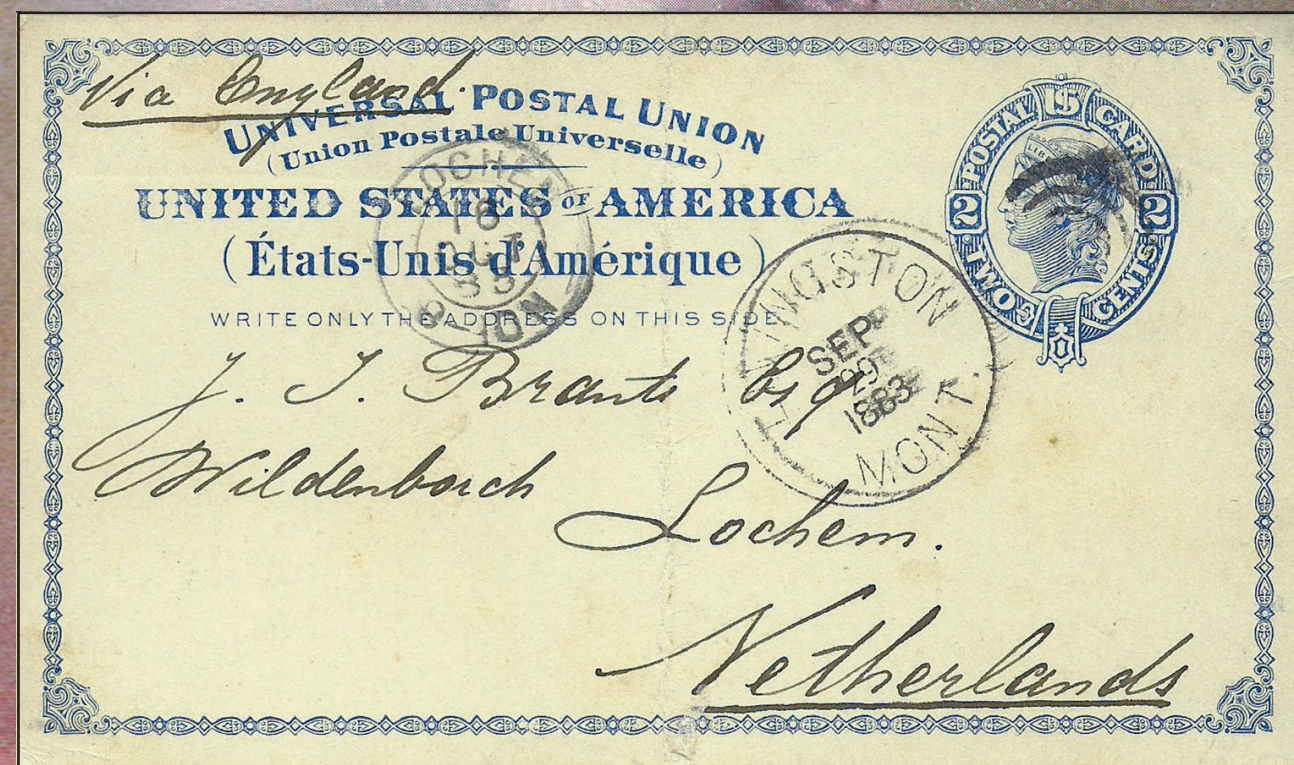 Via England.
UNIVERSAL POSTAL UNION
(Union Postale Universelle)
UNITED STATES OF AMERICA
(États-Unis d'Amérique)
WRITE ONLY THE ADDRESS ON THIS SIDE
U.S. POSTAL CARD
2 TWO CENTS 2
LIBERTY
LOCHEM
18
OCT
83
LIVINGSTON
SEP
29
1883
MONT.
J. J. Brants Esq
Wildenborch
Lochem.
Netherlands